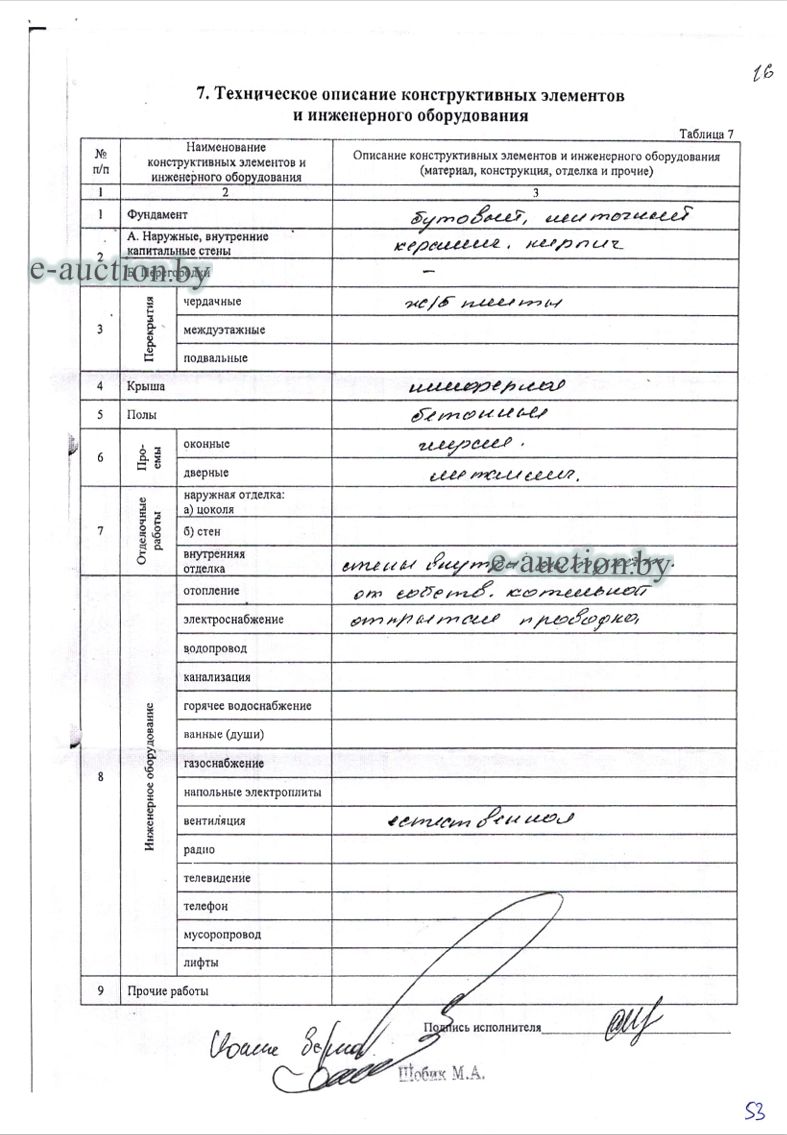 16
7. Техническое описание конструктивных элементов
и инженерного оборудования
Таблица 7
№ п/п
Наименование конструктивных элементов и инженерного оборудования
Описание конструктивных элементов и инженерного оборудования (материал, конструкция, отделка и прочие)
1 2 3
1 Фундамент бутовый, ленточный
2 А. Наружные, внутренние капитальные стены керамич. кирпич
Б. Перегородки –
e-auction.by
3 Перекрытия чердачные ж/б плиты
междуэтажные
подвальные
4 Крыша шиферная
5 Полы бетонные
6 Проемы оконные
дверные
7 Отделочные работы наружная отделка:
а) цоколя
б) стен
внутренняя отделка стены внутри
e-auction.by
8 Инженерное оборудование отопление от собств. котельной
электроснабжение открытая проводка
водопровод
канализация
горячее водоснабжение
ванные (души)
газоснабжение
напольные электроплиты
вентиляция естественная
радио
телевидение
телефон
мусоропровод
лифты
9 Прочие работы
Подпись исполнителя
Копия верна
Шобик М.А.
53